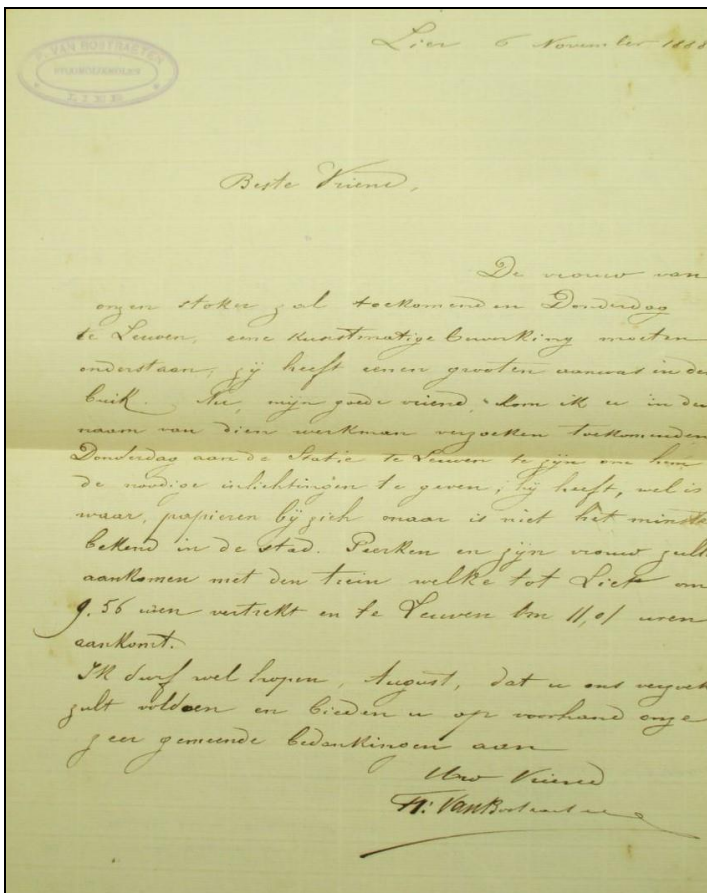 VAN BOSTRAETEN
LIER
Lier 6 November 1888
Beste Vriend,
De vrouw van
onzen stoker zal toekomenden Donderdag
te Leuven, eene kunstmatige bewerking moeten
onderstaan, zij heeft eenen grooten aanwas in den
buik. Nu, mijn goede vriend, kom ik u in den
naam van dien werkman verzoeken toekomenden
Donderdag aan de Statie te Leuven te zijn om hun
de noodige inlichtingen te geven; hij heeft, wel is
waar, papieren bij zich maar is niet het minste
bekend in de stad. Peerken en zijn vrouw zulle
aankomen met den trein welke tot Lier om
9.56 uren vertrekt en te Leuven om 11,01 uren
aankomt.
Ik durf wel hopen, August, dat u ons verzoek
zult voldoen en bieden u op voorhand onze
zeer gemeende bedankingen aan
Uw Vriend
Van Bostraeten